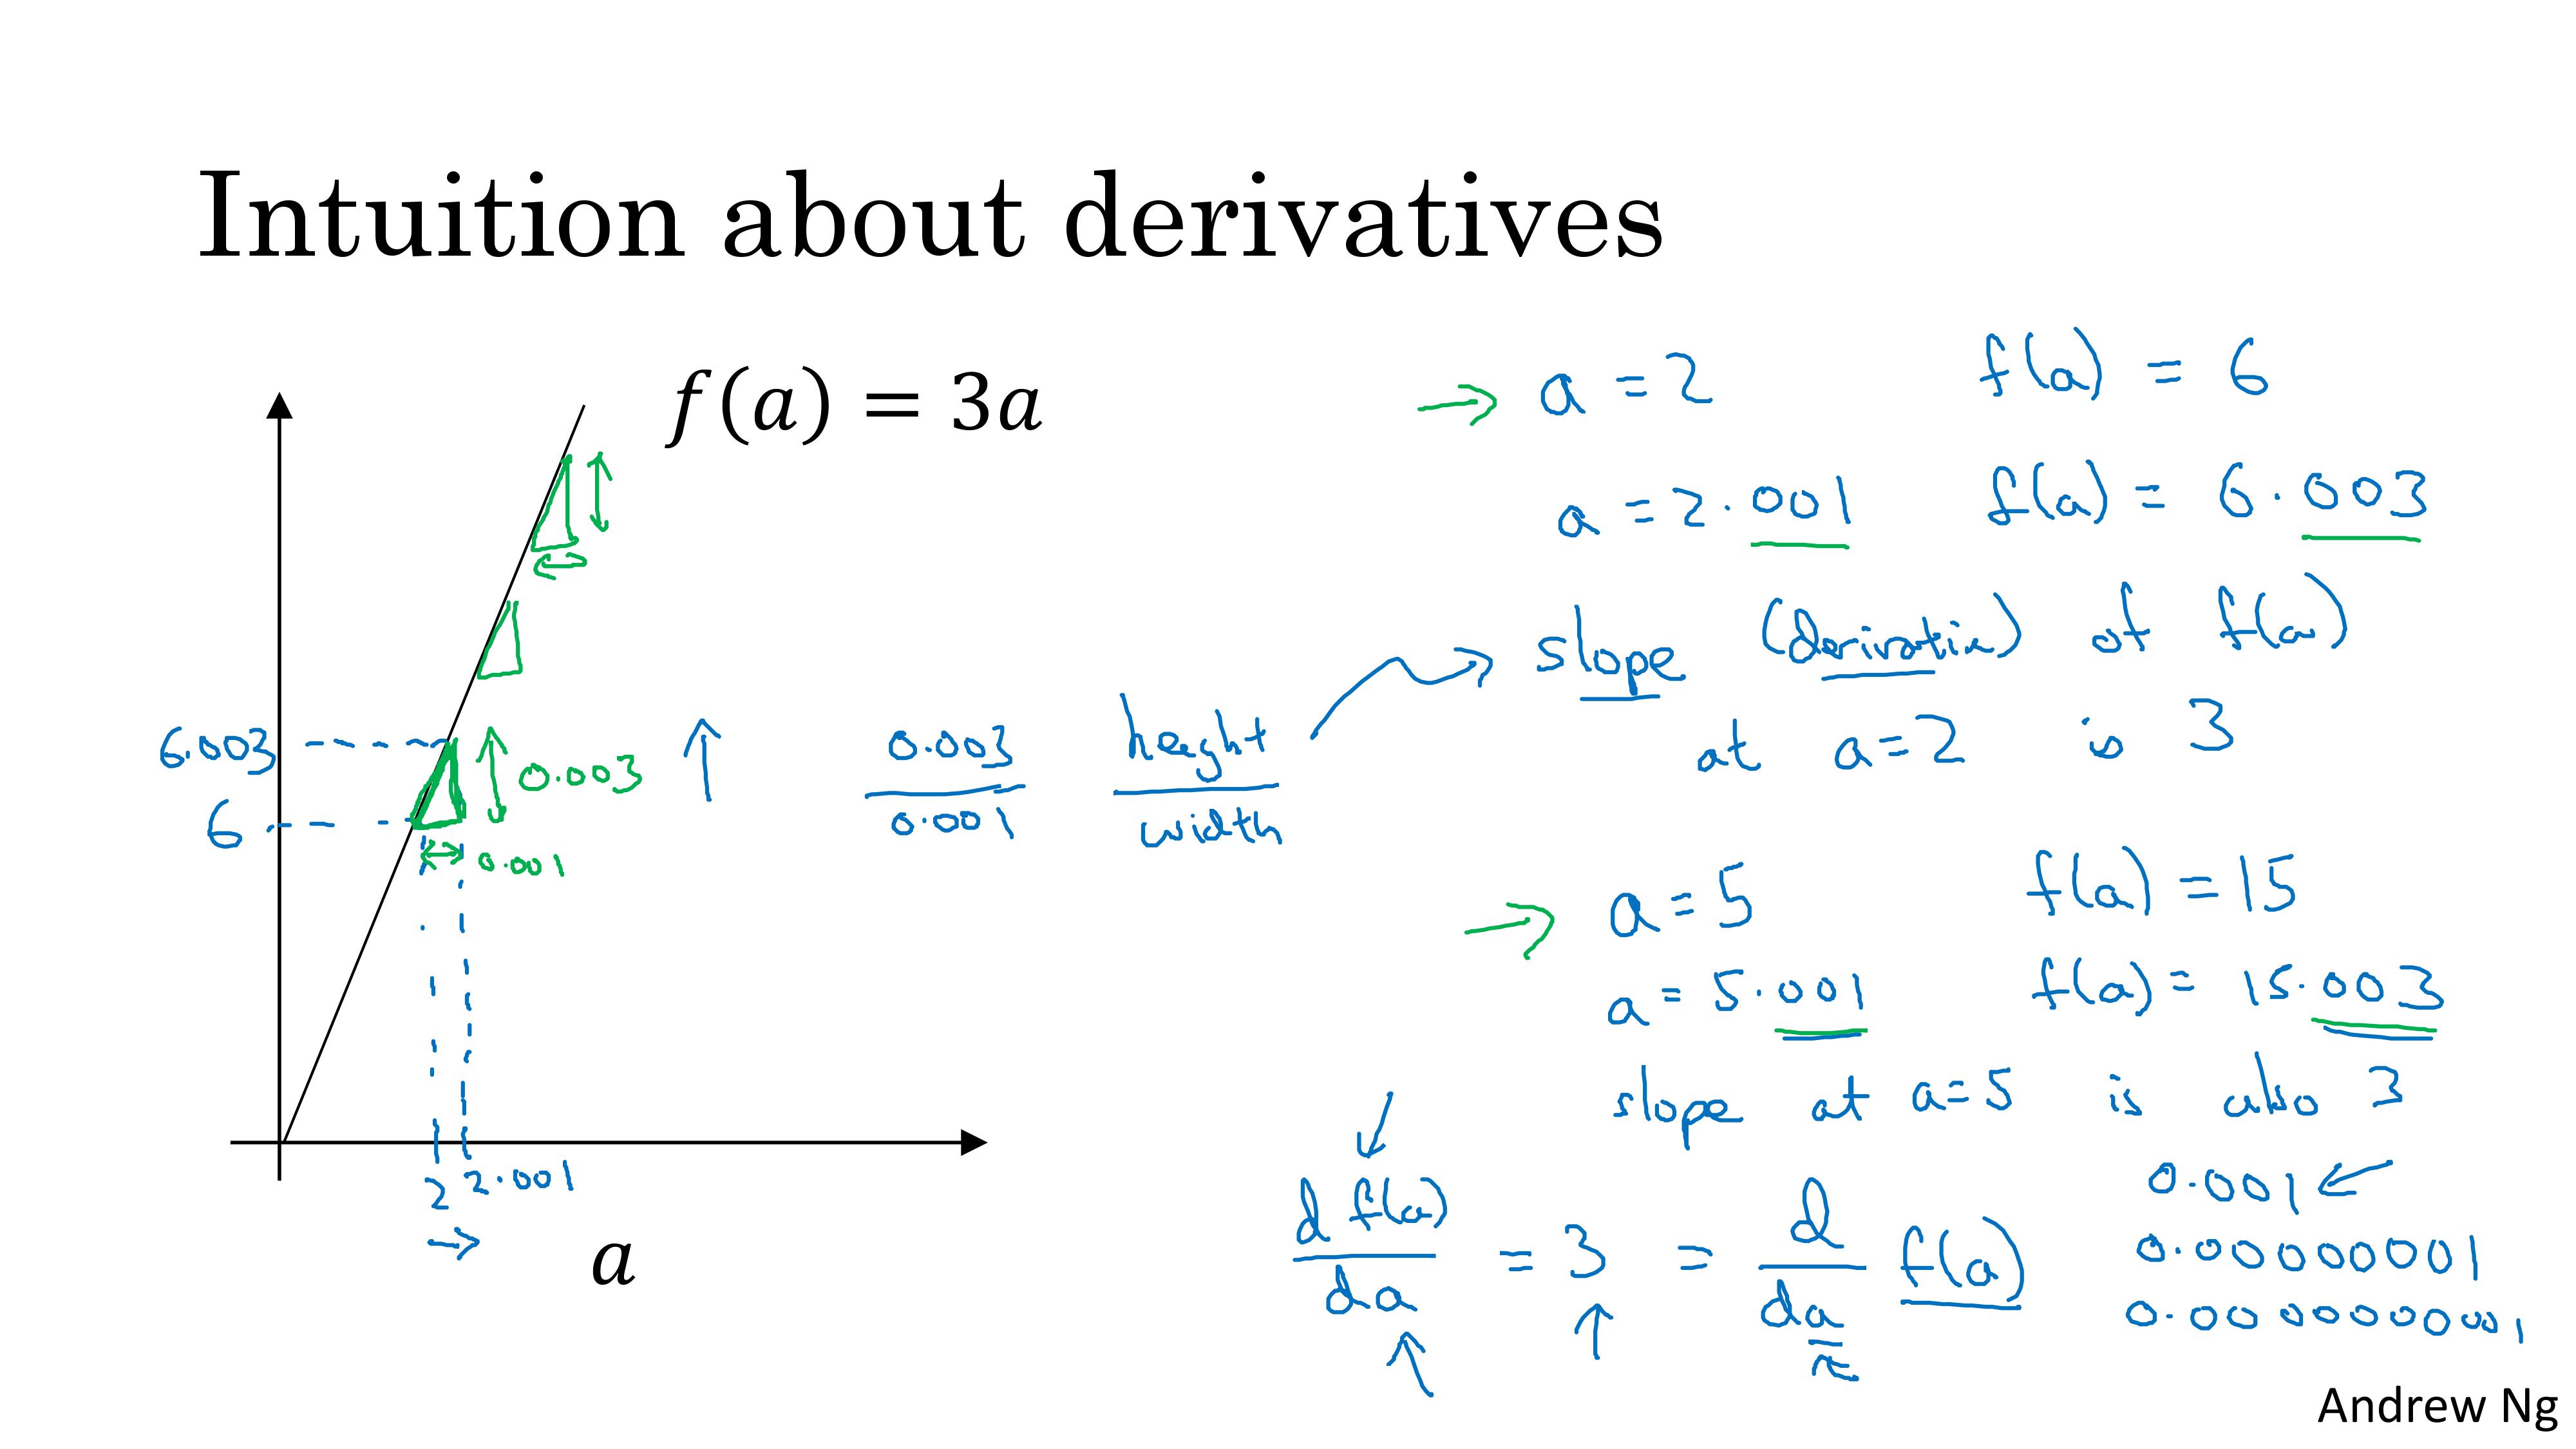 Intuition about derivatives
f(a) = 3a
6.003
6
0.003
0.001
2 2.001
a
0.003 / 0.001 height / width
→ a = 2 f(a) = 6
a = 2.001 f(a) = 6.003
slope (derivative) of f(a)
at a=2 is 3
→ a = 5 f(a) = 15
a = 5.001 f(a) = 15.003
slope at a=5 is also 3
d f(a) / da = 3 = d / da f(a)
0.001 ←
0.00000001
Andrew Ng